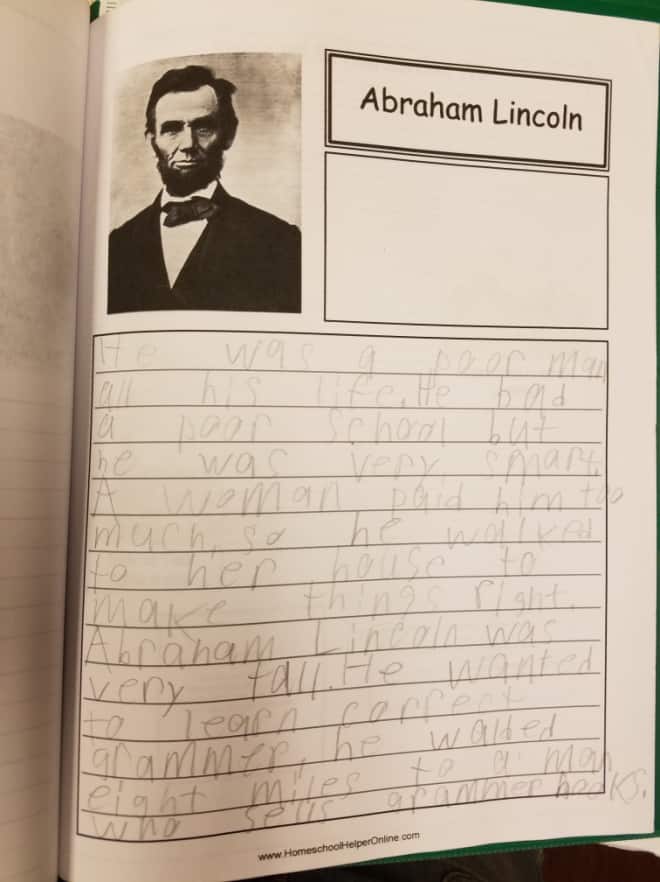 Abraham Lincoln
He was a poor man
all his life. He had
a poor school but
he was very smart.
A woman paid him too
much, so he walked
to her house to
make things right.
Abraham Lincoln was
very tall. He wanted
to learn correct
grammer, he walded
eight miles to a man
who sells grammer books.
www.HomeschoolHelperOnline.com